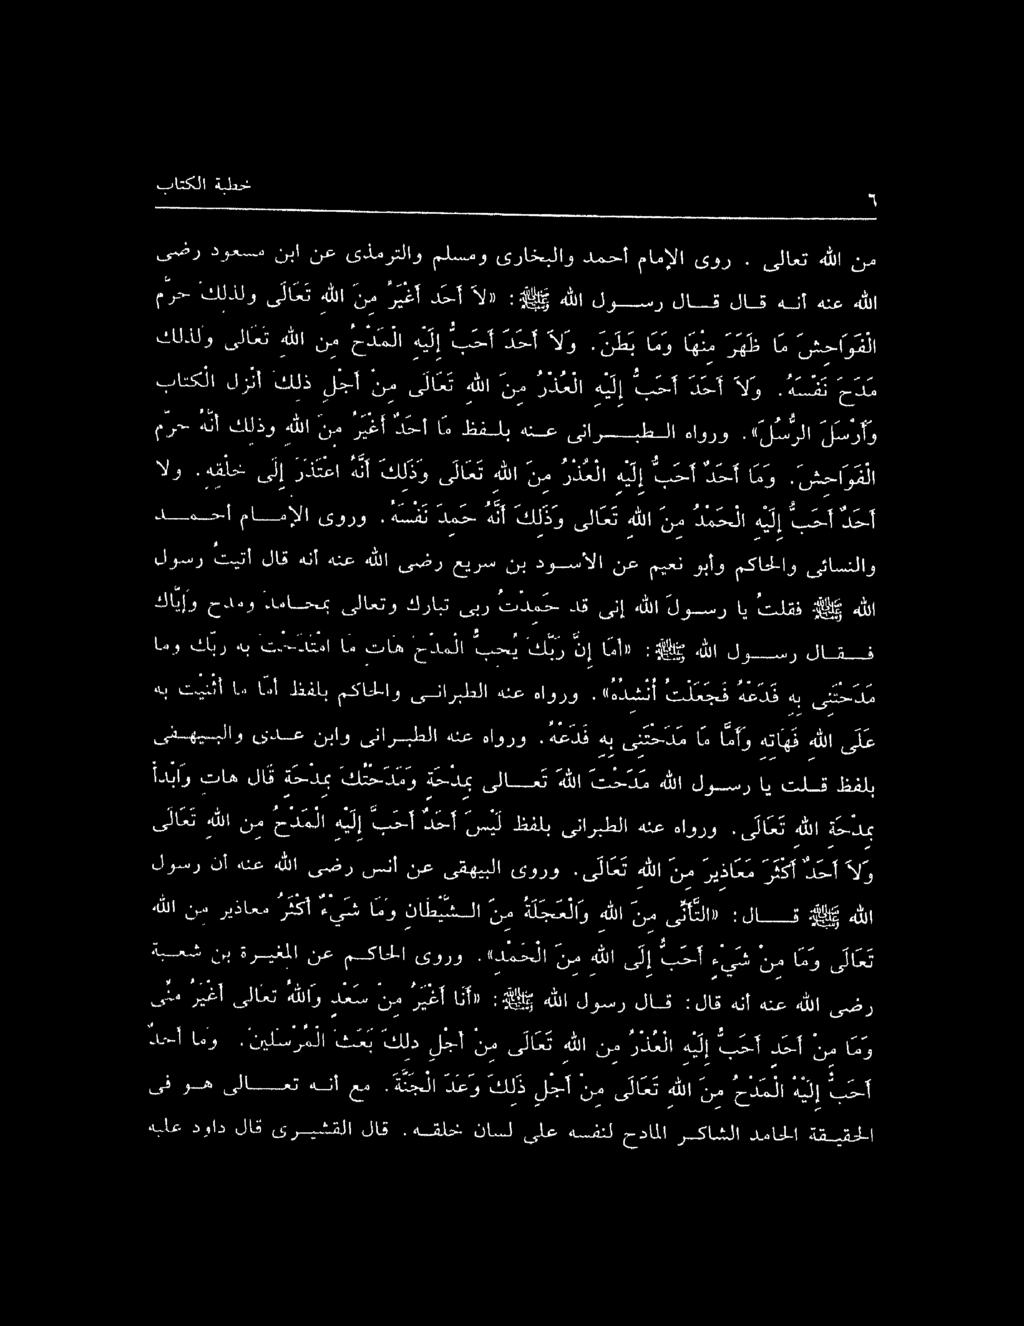 خطبة الكتاب
٦
من الله تعالى . روى الإمام أحمد والبخارى ومسلم والترمذى عن ابن مسعود رضى
الله عنه أنه قال قال رسول الله ﷺ: «لاَ أَحَد أَغْيَرُ مِنَ اللهِ تَعَالَى ولذلكَ حرّم
الْفَوَاحِشَ مَا ظَهَرَ مِنْهَا وَمَا بَطَنَ. وَلاَ أَحَدَ أَحَبُّ إلَيْهِ الْمَدْحُ مِن اللهِ تعَالى ولذلك
مَدَحَ نَفْسَهُ. وَلاَ أَحَدَ أَحَبُّ إلَيْهِ الْعُذْرُ مِنَ اللهِ تَعَالَى مِنْ أَجْلِ ذلكَ أنْزل الْكتاب
وَأَرْسَلَ الرُّسُلَ». ورواه الطبرانى عنه بلفظ مَا أَحَدٌ أَغْيَرُ مِنَ اللهِ وذلك أنهُ حرّم
الْفَوَاحِشَ. وَمَا أَحَدٌ أَحَبُّ إلَيْهِ الْعُذْرُ مِنَ اللهِ تَعَالَى وَذَلِكَ أَنَّهُ اعْتَذَرَ إلَى خَلْقِهِ. ولا
أَحَدٌ أَحَبُّ إلَيْهِ الْحَمْدُ مِنَ اللهِ تَعَالى وَذَلِكَ أَنَّهُ حَمِدَ نَفْسَهُ. وروى الإمام أحمد
والنسائى والحاكم وأبو نعيم عن الأسود بن سريع رضى الله عنه أنه قال أتيتُ رسول
الله ﷺ فقلتُ يا رسولَ الله إنى قد حَمِدْتُ ربى تبارك وتعالى بمحامد ومدح وَإيَّاك
فقال رسول الله ﷺ: «أمَا إنَّ رَبَّكَ يُحِبُّ الْمَدْحَ هَات مَا امْتَدَحْتَ به ربّك وما
مَدَحْتَنِى بِهِ فَدَعْهُ فَجَعَلْتُ أُنْشِدُهُ». ورواه عنه الطبرانى والحاكم بلفظ أمّا ما أثْنَيْت به
عَلَى اللهِ فَهَاتِهِ وَأمَّا مَا مَدَحْتَنِى بِهِ فَدَعْهُ. ورواه عنه الطبرانى وابن عدى والبيهقى
بلفظ قلت يا رسول الله مَدَحْتَ اللهَ تَعالى بمِدْحَةٍ وَمَدَحْتُكَ بِمِدْحَةٍ قَال هات وَابْدأ
بِمدْحَةِ اللهِ تَعَالَى. ورواه عنه الطبرانى بلفظ لَيْسَ أَحَدٌ أَحَبَّ إلَيْهِ الْمَدْحُ مِن اللهِ تَعَالَى
وَلاَ أَحَدٌ أَكْثَرَ مَعَاذِيرَ مِنَ اللهِ تَعَالَى. وروى البيهقى عن أنس رضى الله عنه أن رسول
الله ﷺ قال: «التَّأَنِّى مِنَ اللهِ وَالْعَجَلَةُ مِنَ الشَّيْطَانِ وَمَا شَىْءٌ أَكْثَرُ معاذير من الله
تَعَالَى وَمَا مِنْ شَىْءٍ أَحَبُّ إلَى اللهِ مِنَ الْحَمْدِ». وروى الحاكم عن المغيرة بن شعبة
رضى الله عنه أنه قال: قال رسول الله ﷺ: «أَنَا أَغْيَرُ مِنْ سَعْدٍ وَاللهُ تعالى أَغْيَرُ مِنِّى
وَمَا مِنْ أَحَدٍ أَحَبُّ إلَيْهِ الْعُذْرُ مِن اللهِ تَعَالَى مِنْ أَجْلِ ذلكَ بَعَثَ الْمُرْسَلِينَ. وَمَا أَحَدٌ
أَحَبَّ إلَيْهِ الْمَدْحُ مِنَ اللهِ تَعَالَى مِنْ أَجْلِ ذَلِكَ وَعَدَ الْجَنَّةَ. مع أنه تعالى هو فى
الحقيقة الحامد الشاكر المادح لنفسه على لسان خلقه. قال القشيرى قال داود عليه